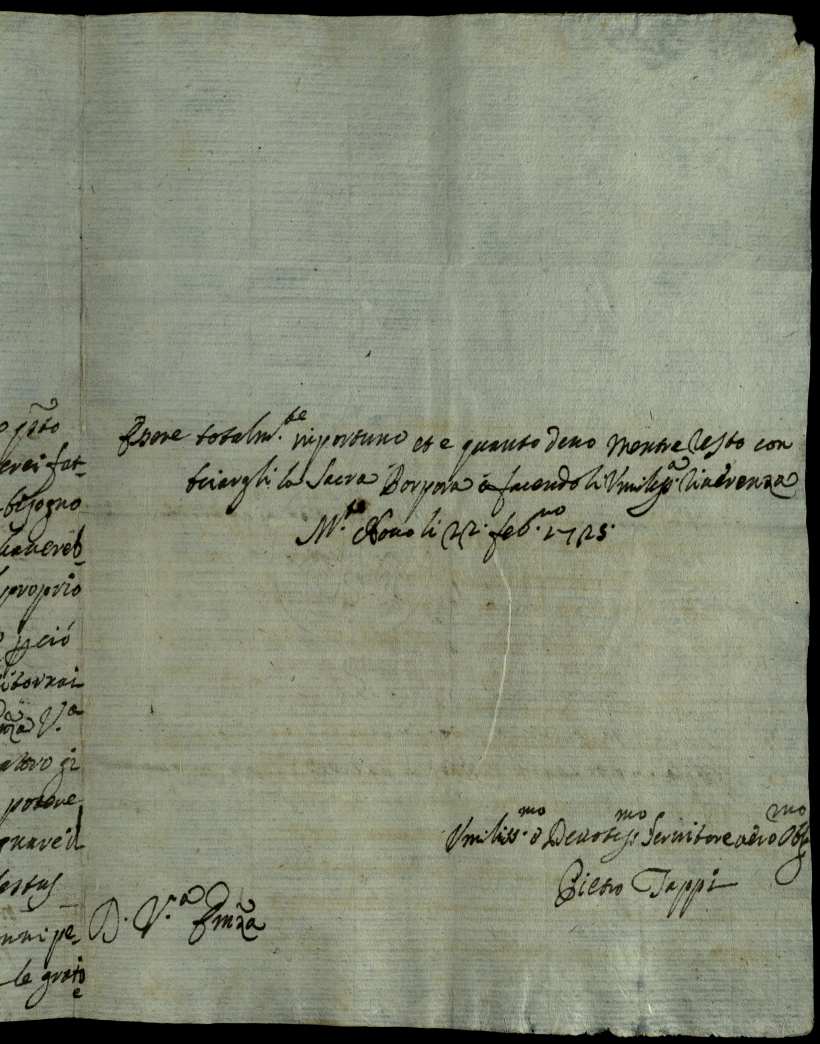 o pñto
erei fat-
bisogno
havereb-
proprio
o p ciò
ritornai
mza V.a
altro gi
potere
quare il
festus
nni pe-
le grate
Esere totalm.te inportuno et e quanto devo mentre resto con
bciargli la Sacra Porpora e facendoli Vmiliss.a riaverenza
M.te Novo li 22. feb.ro 1725.
Vmiliss.mo e Devotiss.mo Servitore vero Obg.mo
Pietro Tappi
D. V.a Emza